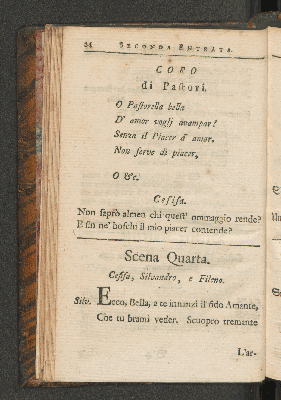 34 SECONDA ENTRATA
CORO
di Pastori.
O Pastorella bella
D' amor vogli avampar?
Senza il Piacer d' amor.
Non serve di piacer,
O &c.
Cefisa.
Non saprò almen chi quest' ommaggio rende?
E fin ne' boschi il mio piacer contende?
Scena Quarta.
Cefisa, Silvandro, e Fileno.
Silv. Ecco, Bella, a te innanzi il fido Amante,
Che tu brami veder. Scuopro tremante
L'ar-